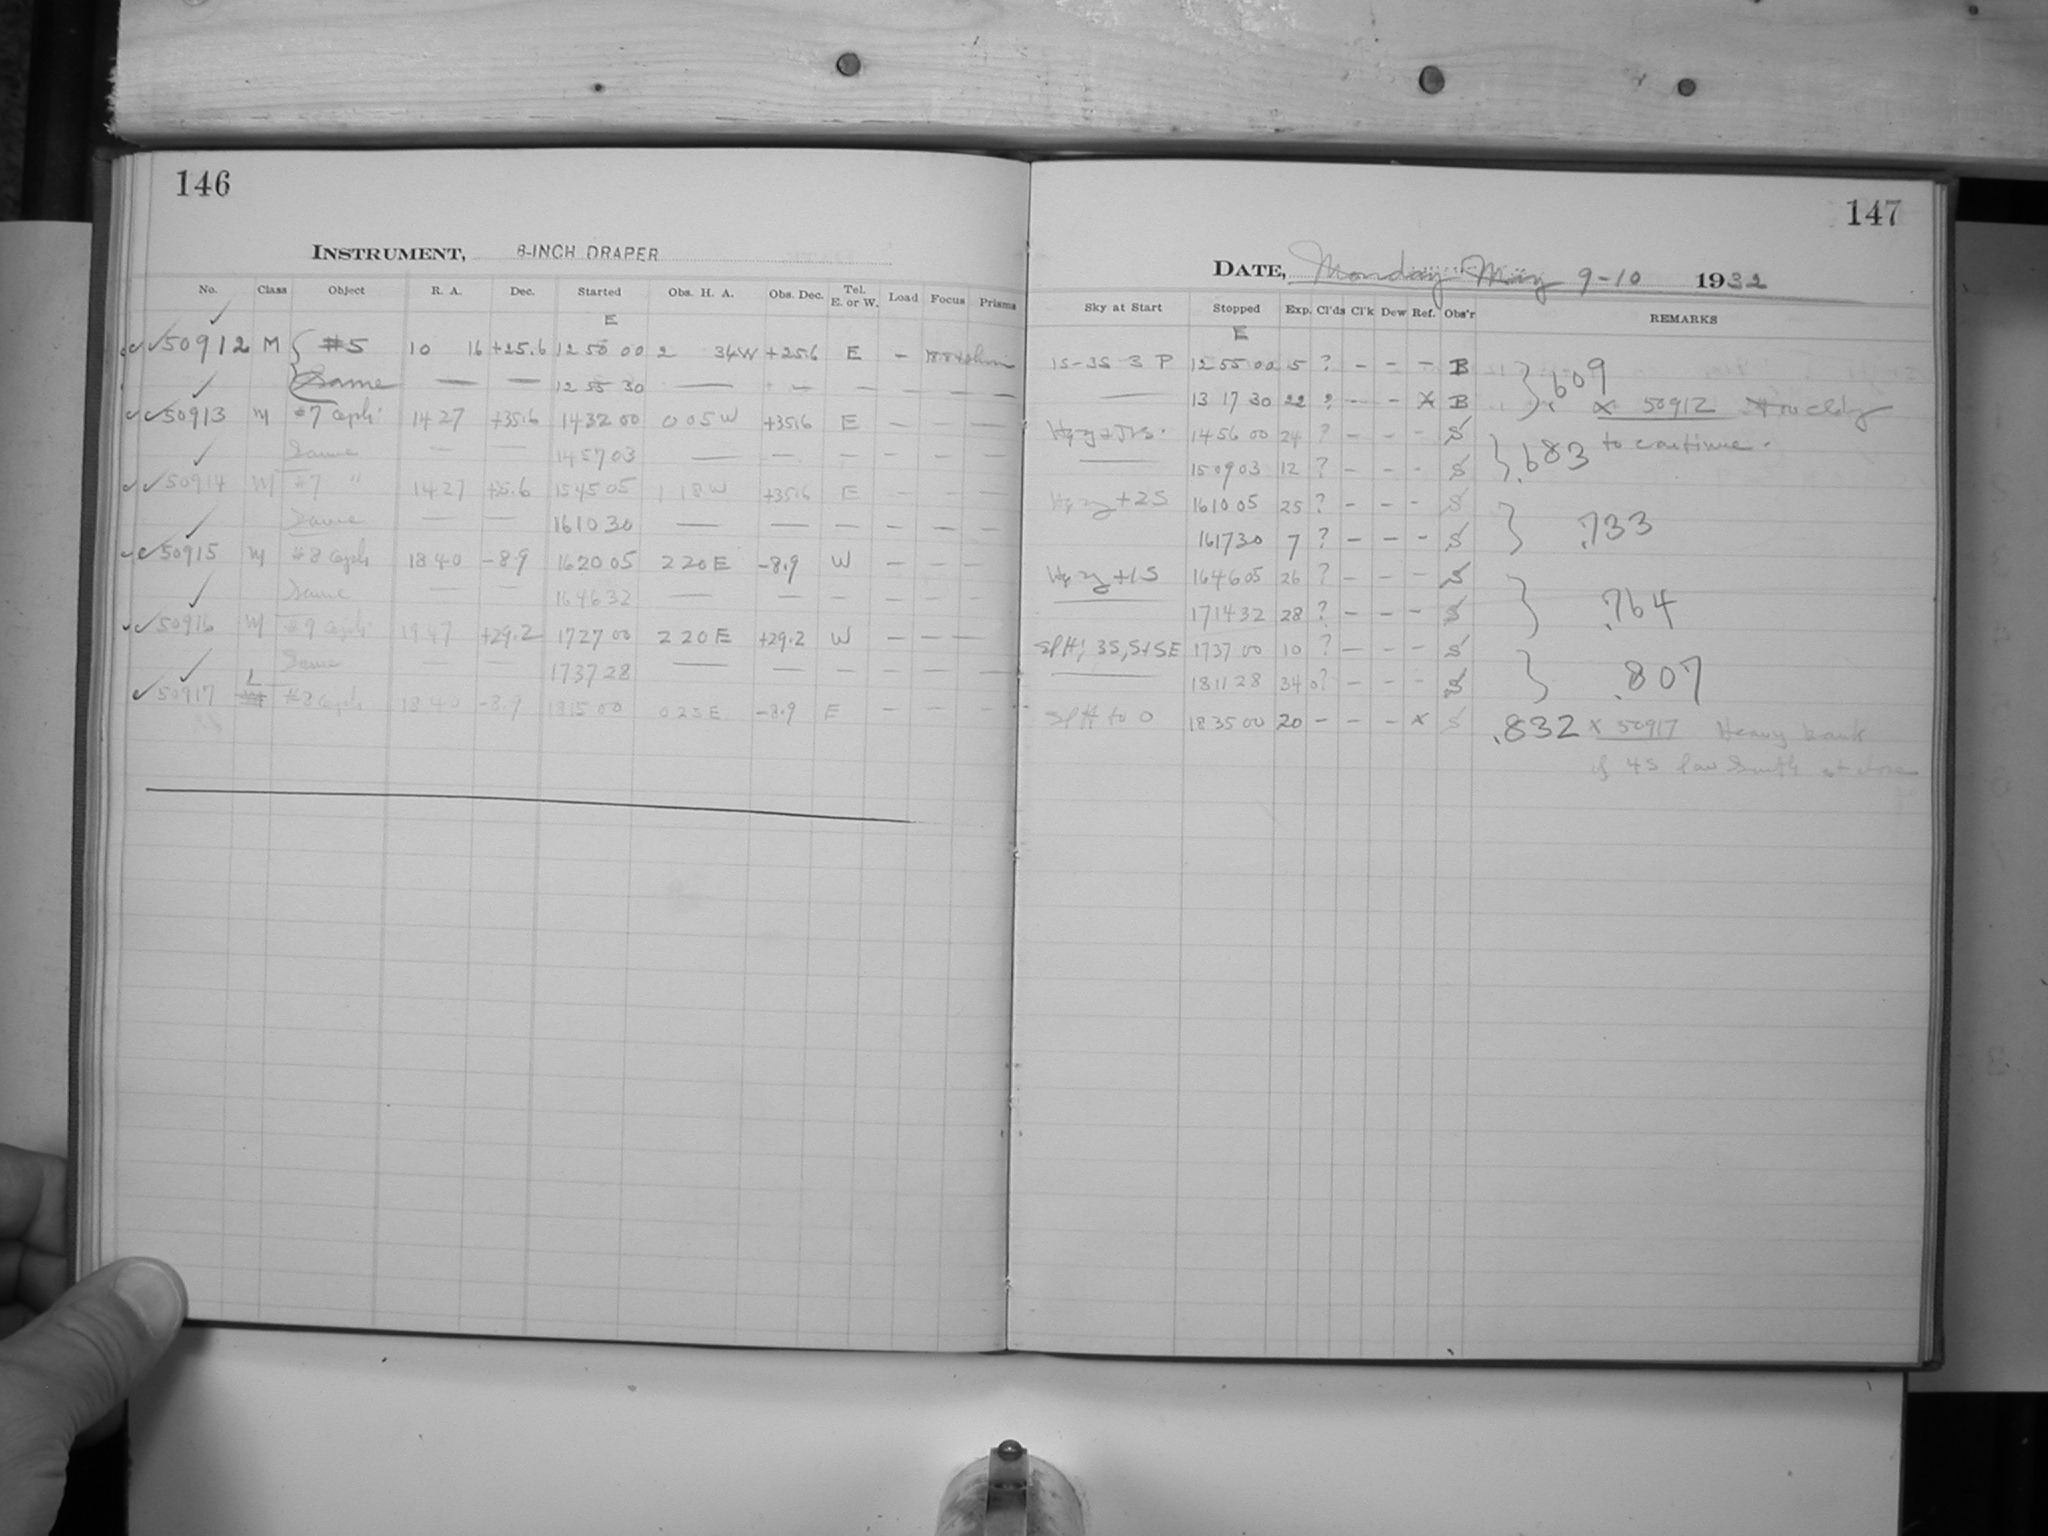 146
INSTRUMENT, 8-INCH DRAPER
No. Class Object R. A. Dec. Started Obs. H. A. Obs. Dec. Tel. E. or W. Load Focus Prisms
E
50912 M #5 10 16 +25.6 12 50 00 2 34W +25.6 E –
Same — — 12 55 30 — – — — — —
50913 M #7 Ceph: 14 27 +35.6 14 32 00 0 05 W +35.6 E – – –
Same — — 14 57 03 — – – – – –
50914 M #7 " 14 27 +35.6 15 45 05 1 18 W +35.6 E – – –
Same — — 16 10 30 — — – – – –
50915 M #8 Ceph 18 40 –8.9 16 20 05 2 20 E –8.9 W – – –
Same — — 16 46 32 — – – – – –
50916 M #9 Ceph: 19 47 +29.2 17 27 00 2 20 E +29.2 W – – –
Same — 17 37 28 — – – – – –
50917 L #8 Ceph 18 40 –8.9 18 15 00 0 25 E –8.9 E – – –
147
DATE, Monday May 9-10 1932
Sky at Start Stopped Exp. Cl'ds Cl'k Dew Ref. Obs'r REMARKS
E
1S-3S 3 P 12 55 00 5 ? – – – B } .609
— 13 17 30 22 ? – – X B X 50912 cldy
14 56 00 24 ? – – – S to continue.
— 15 09 03 12 ? – – – S } .683
Hazy +2S 16 10 05 25 ? – – – S
16 17 30 7 ? – – – S } .733
Hazy +1S 16 46 05 26 ? – – – S
— 17 14 32 28 ? – – – S } .764
Sl H; 3S, S+SE 17 37 00 10 ? – – – S
— 18 11 28 34 0? – – – S } .807
Sl H to 0 18 35 00 20 – – – X S .832 X 50917 Heavy bank
of 4S low South at close